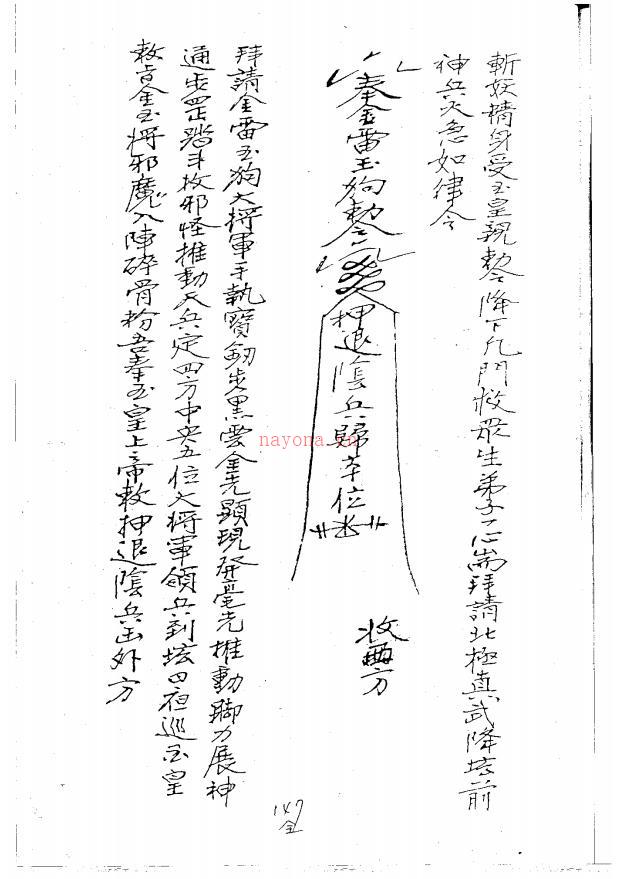 斬妖精身受玉皇親勅令降下凡門救眾生弟子一心耑拜請北極真武降坛前
神兵火急如律令
奉金雷玉狗勅令
押退陰兵歸本位
收西方
拜請金雷玉狗大將軍手執寶劍步黑雲金光顯現發毫光推動腳力展神
通步罡踏斗收邪怪推動天兵定四方中央五位大將軍領兵到坛日夜巡玉皇
敕旨金玉將邪魔入陣碎骨粉吾奉玉皇上帝敕押退陰兵出外方
147
全
nayona.vn